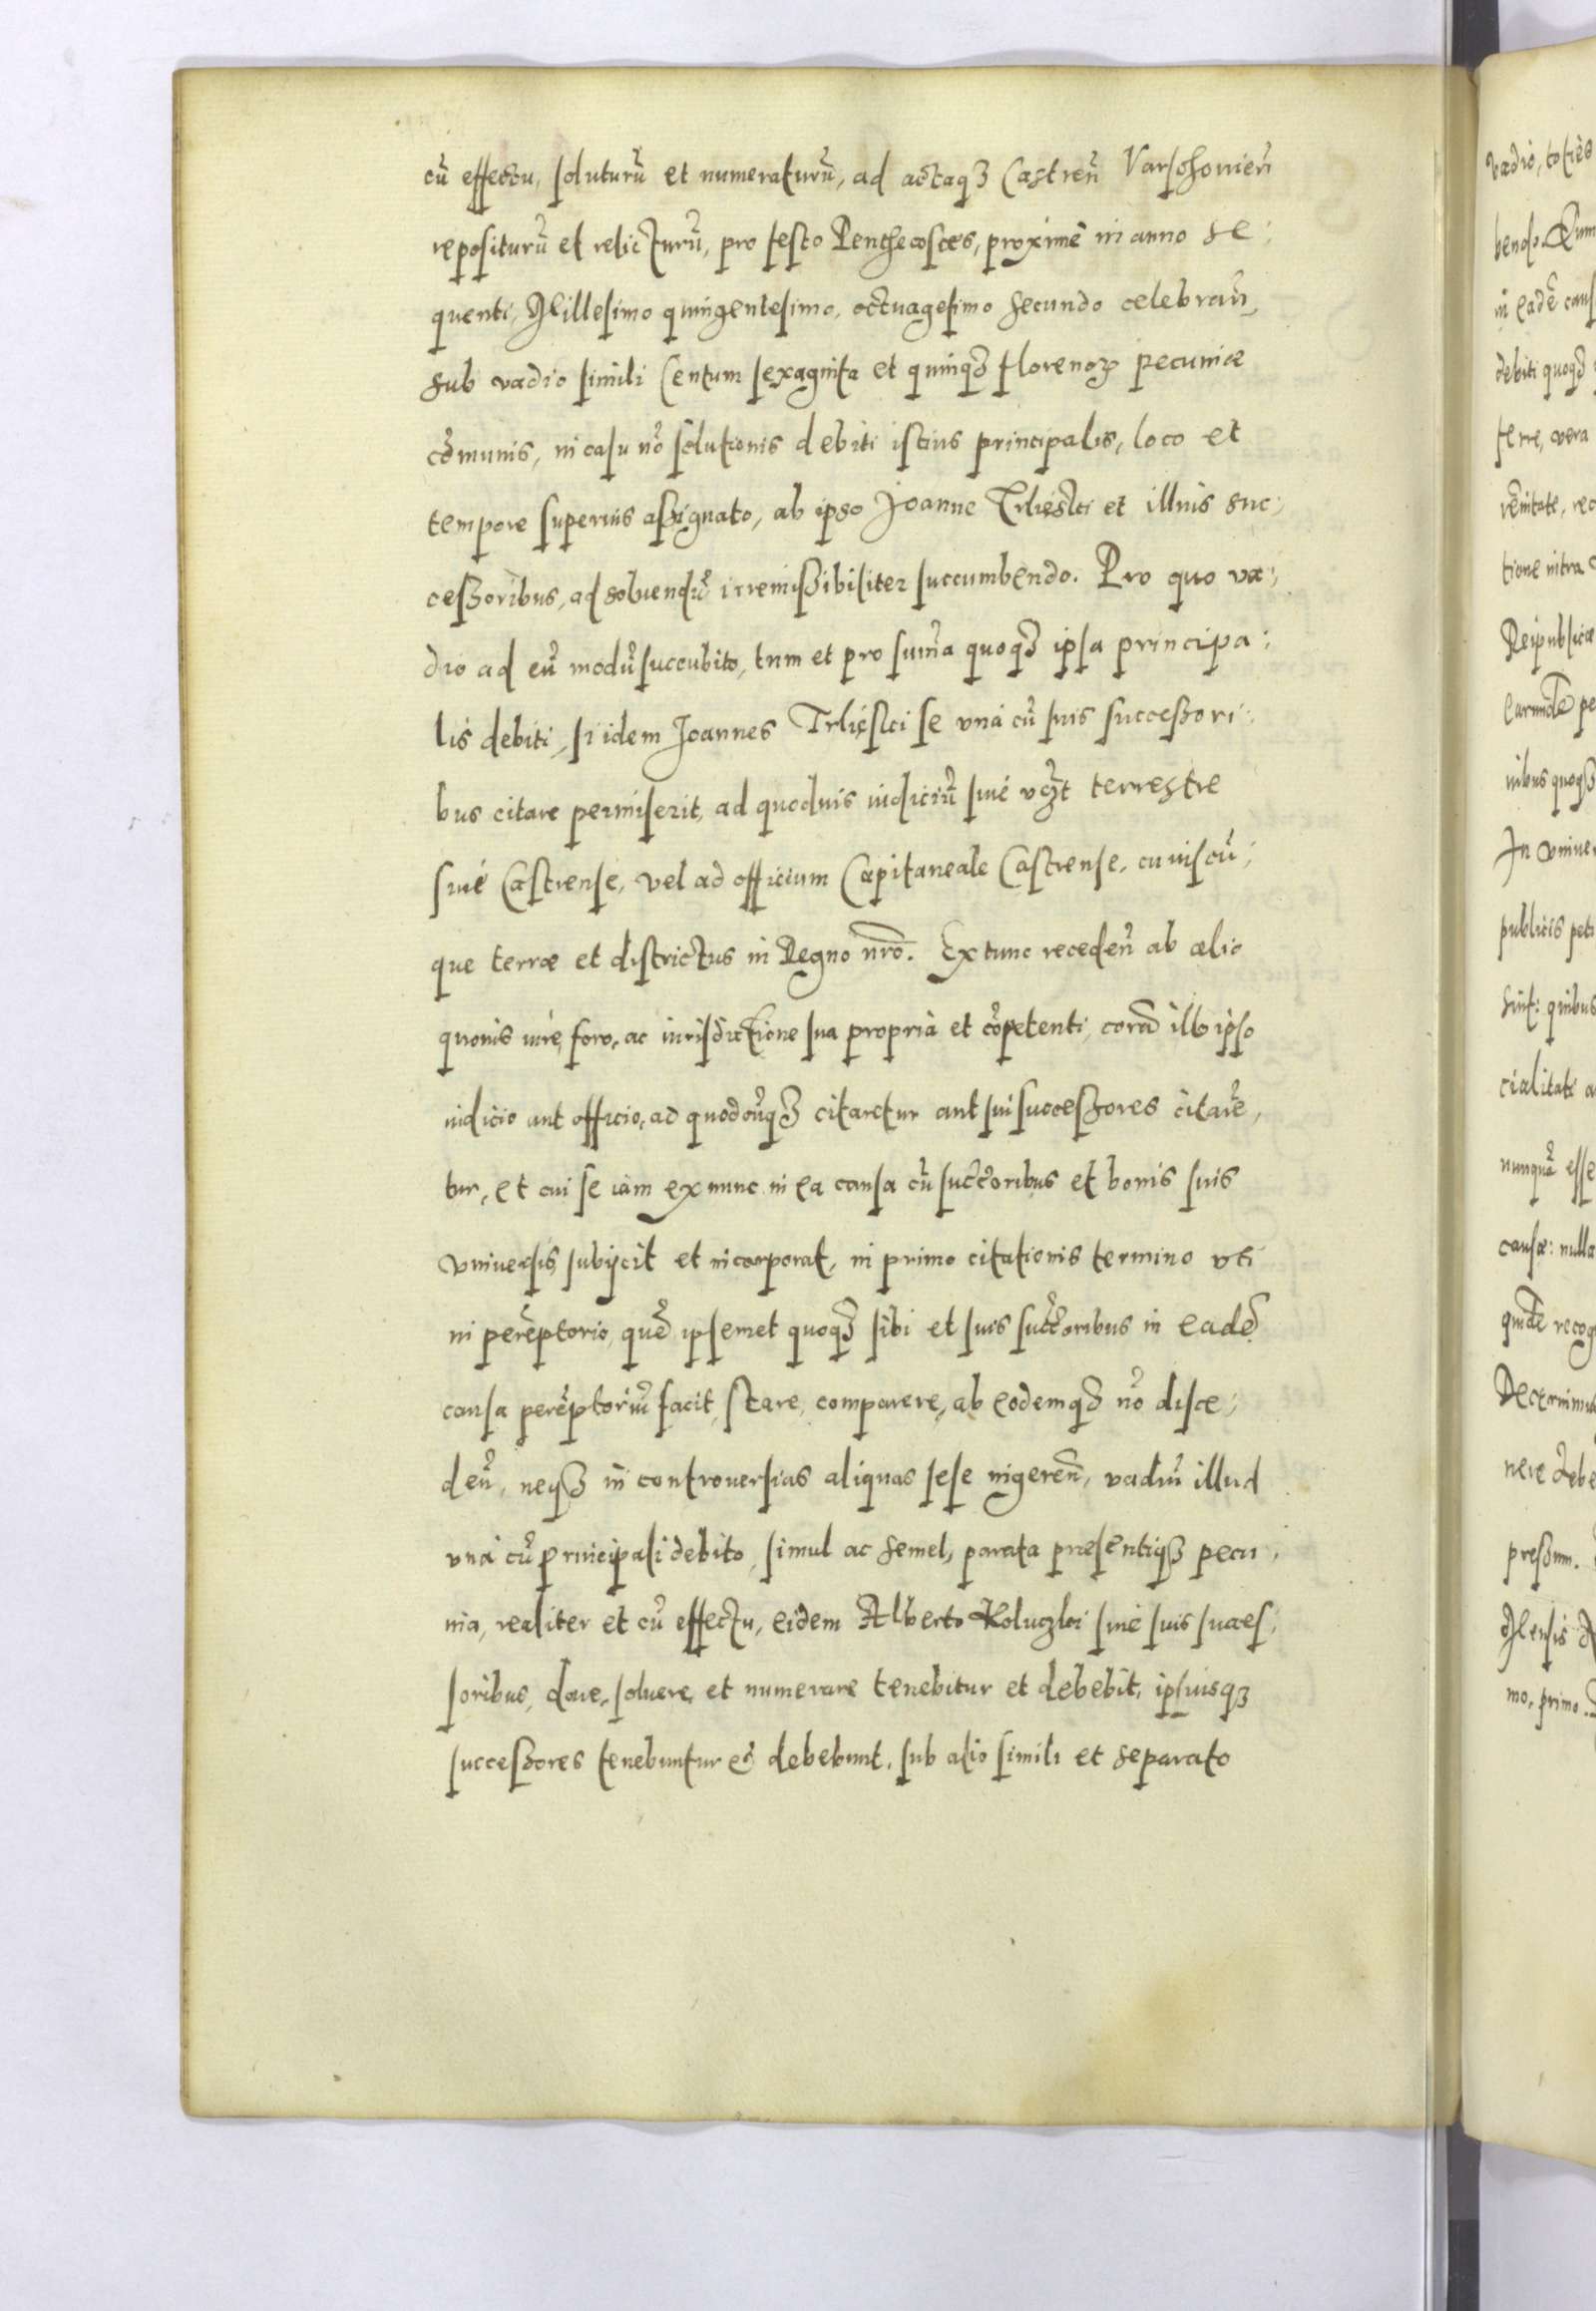 cũ effectu, soluturũ et numeraturũ, ad actaqȝ Castreñ Varschovieñ
repositurũ et relicturũ, pro festo Penthecostes, proximè in anno se:
quenti, Millesimo quingentesimo, octuagesimo secundo celebrañ,
sub vadio simili Centum sexaginta et quinqȝ florenoꝝ pecuniæ
cõmunis, in casu nõ solutionis debiti istius principalis, loco et
tempore superius assignato, ab ipso Joanne Trlieski et illius suc:
cessoribus, ad soluendũ irremissibiliter succumbendo. Pro quo va:
dio ad eũ modũ succubito, tum et pro sum̃a quoqȝ ipsa principa:
lis debiti, si idem Joannes Trlięski se unà cũ suis successori:
bus citare permiserit, ad quoduis iudiciũ siuè vzt terrestre
siuè Castrense, vel ad officium Capitaneale Castrense, cuiuscũ:
que terræ et districtus in Regno nrõ. Ex tunc recedeñ ab alio
quouis iure, foro, ac iurisdictione sua propria et cõpetenti, corã illo ipso
iudicio aut officio, ad quodcũqȝ citaretur aut sui successores citarẽ,
tur, et cui se iàm ex nunc in ea causa cũ succ̃oribus et bonis suis
vniuersis, subijcit et incorporat, in primo citationis termino vti
in perẽptorio, quẽ ipsemet quoqȝ sibi et suis succ̃oribus in eadẽ
causa perẽptoriũ facit, stare, comparere, ab eodemqȝ nõ disce:
deñ, neqȝ in controuersias aliquas sese ingereñ, vadiũ illud
vnà cũ principali debito, simul ac semel, parata presentiqȝ pecu:
nia, realiter et cũ effectu, eidem Alberto Koluczki siuè suis succes:
soribus, dare, soluere, et numerare tenebitur et debebit, ipsiusqȝ
successores tenebuntur et debebunt, sub alio simili et separato